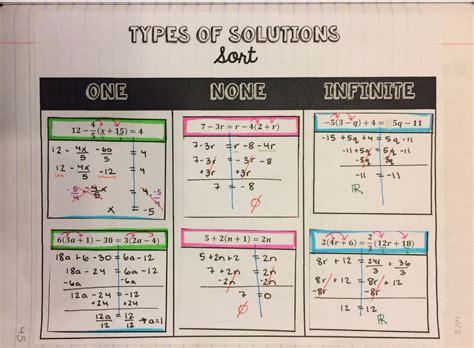 TYPES OF SOLUTIONS
Sort
ONE
NONE
INFINITE
12 - 4/5(x + 15) = 4
12 - 4x/5 - 60/5 = 4
12 - 4x/5 - 12 = 4
-5/4 · -4x/5 = 4 · -5/4
x = -5
7 - 3r = r - 4(2 + r)
7-3r = r-8-4r
7-3r = -3r-8
+3r +3r
7 = -8
∅
-5(3 - q) + 4 = 5q - 11
-15 + 5q + 4 = 5q - 11
-11 + 5q = 5q - 11
-5q -5q
-11 = -11
ℝ
6(3a + 1) - 30 = 3(2a - 4)
18a + 6 - 30 = 6a - 12
18a - 24 = 6a - 12
-6a -6a
12a - 24 = -12
+24 +24
12a/12 = 12/12 → a=1
5 + 2(n + 1) = 2n
5 + 2n + 2 = 2n
7 + 2n = 2n
-2n -2n
7 = 0
∅
2(4r + 6) = 2/3(12r + 18)
8r + 12 = 24r/3 + 36/3
8r + 12 = 8r + 12
-8r -8r
12 = 12
ℝ
45